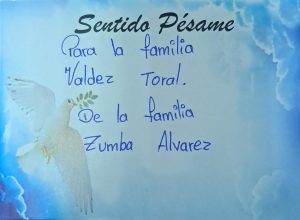 Sentido Pésame
Para la familia
Valdez Toral.
De la familia
Zumba Alvarez